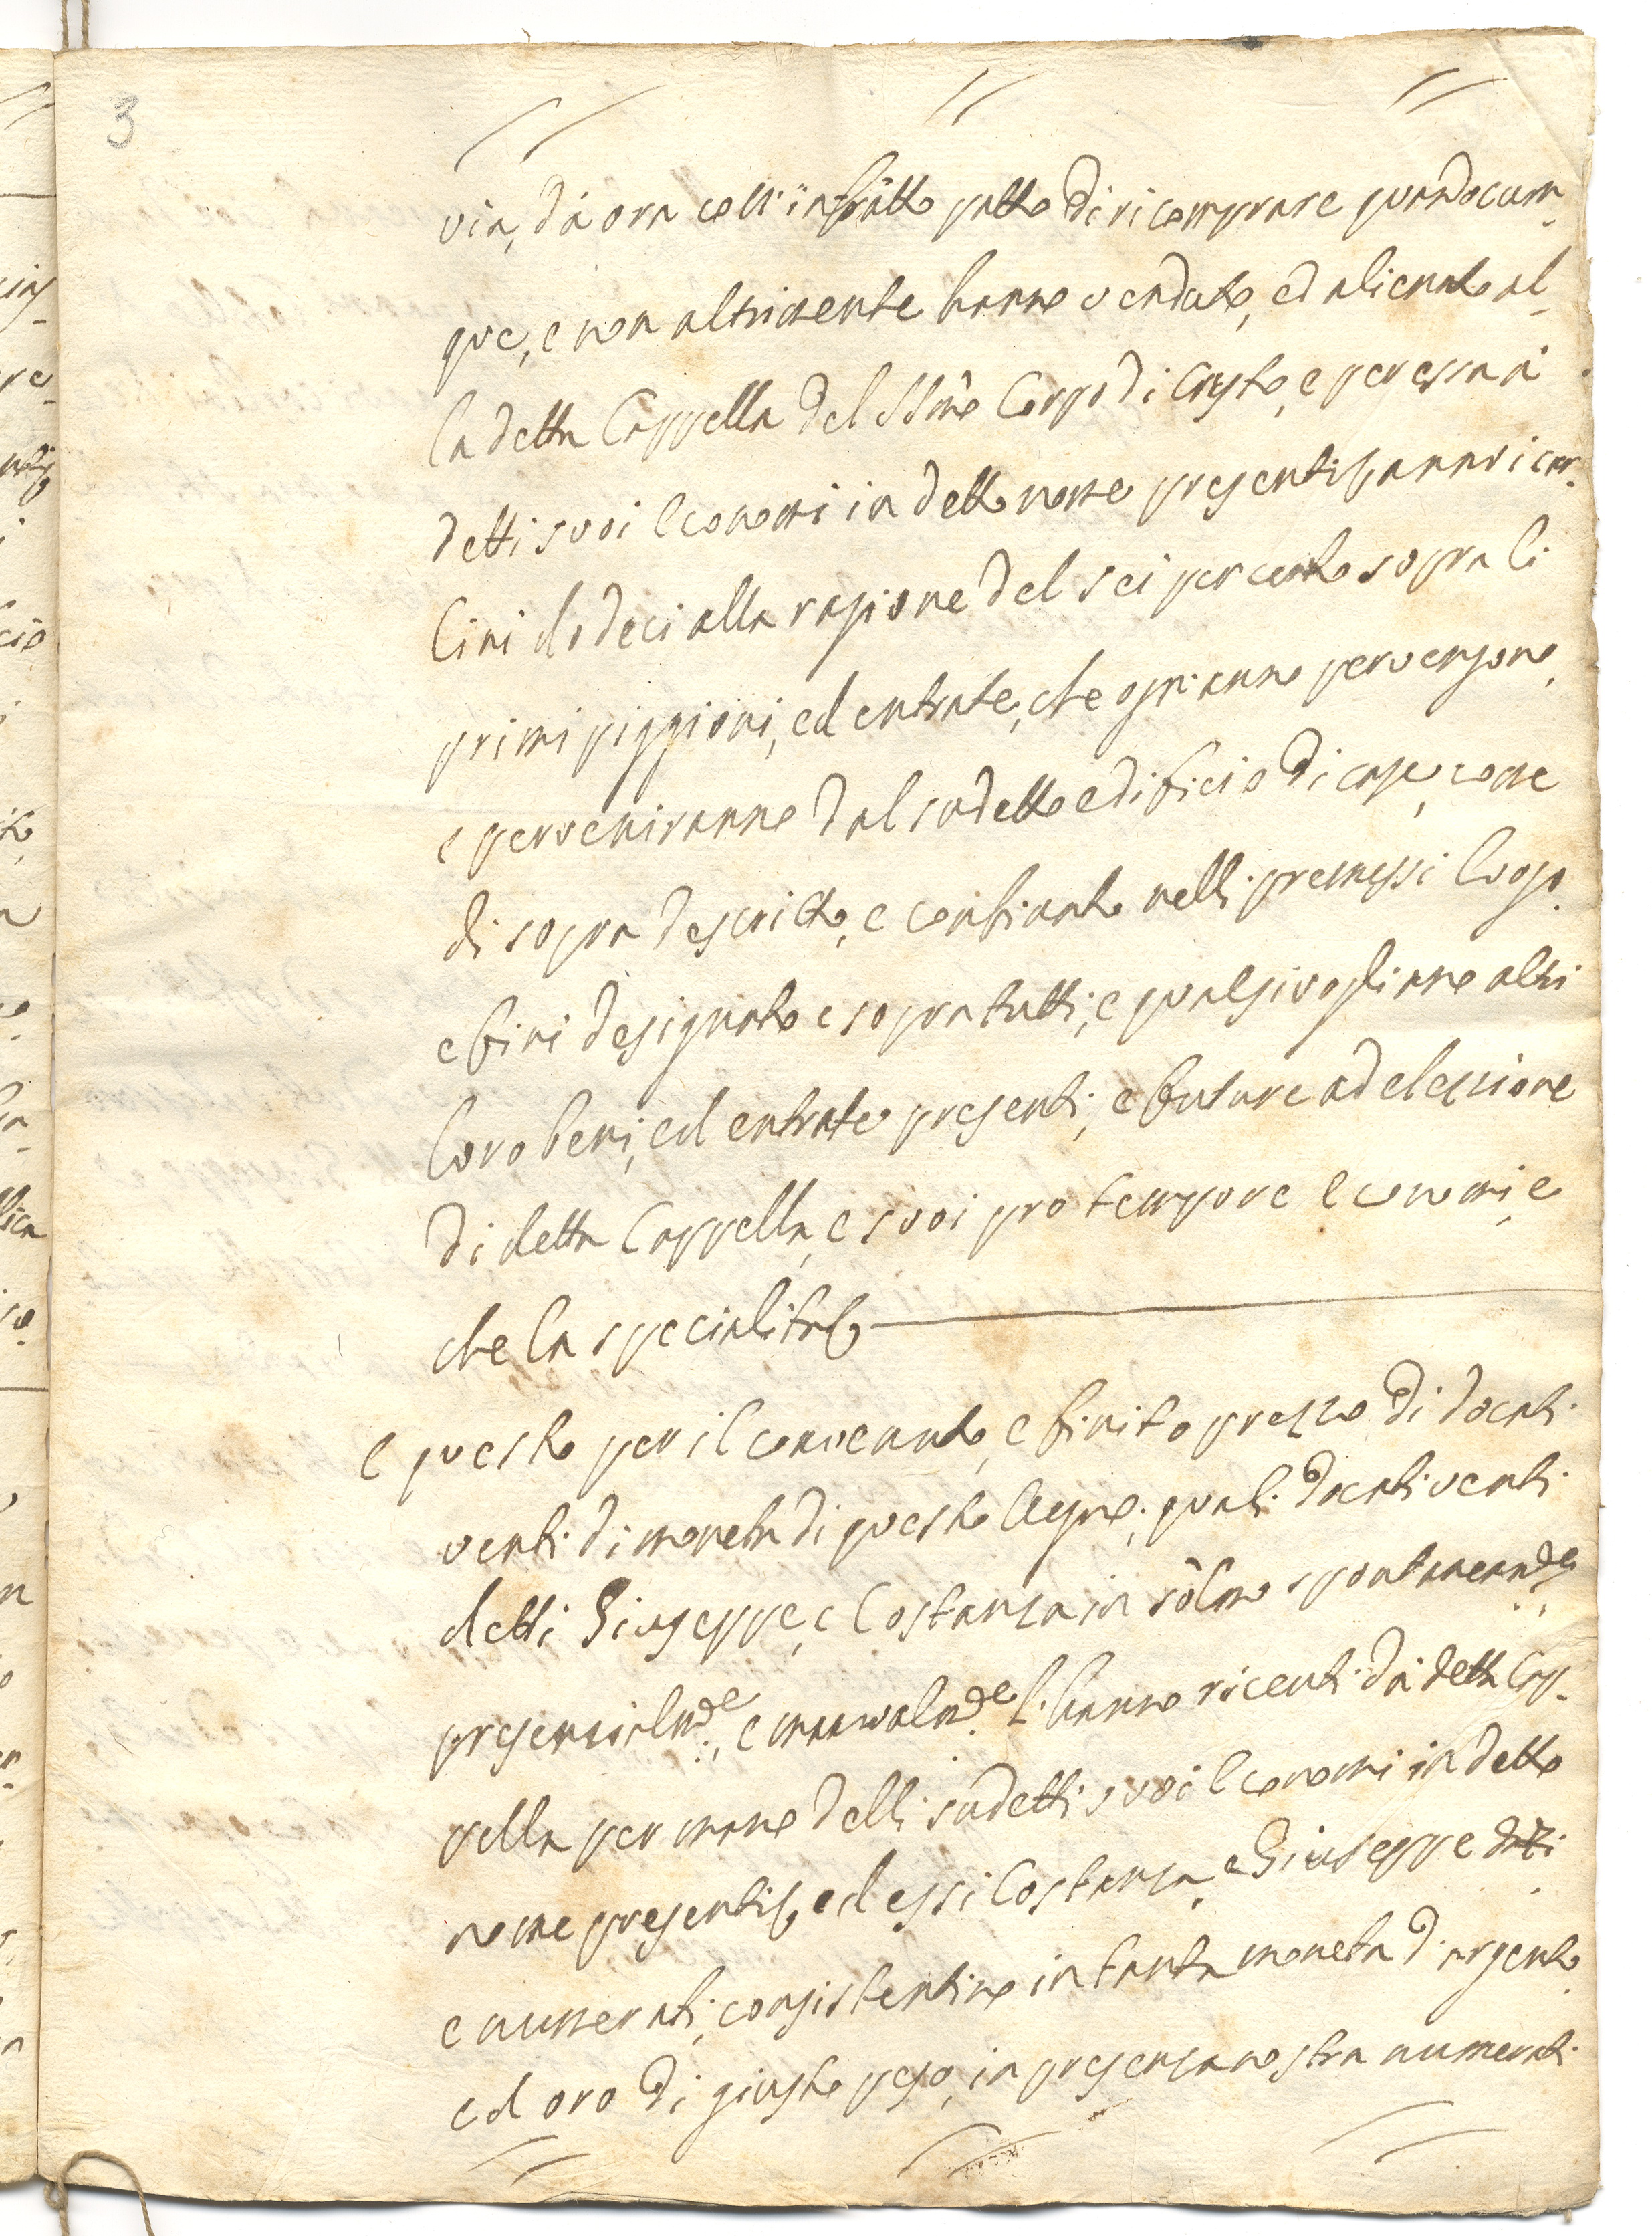 3
via, da ora coll'infratto patto di ricomprare quandocum-
que, e non altrimente hanno venduto, ed alienato al-
la detta Cappella del SSmo Corpo di Cristo, e per essa a
detti suoi Economi in detto nome presentino annui car-
lini dodeci alla ragione del sei per cento sopra li
primi piggioni, ed entrate, che ogn'anno pervengono,
e perveniranno dal sudetto edificio di case, come
di sopra descritto, e confinato nelli premessi luogo,
e fini designato e sopra tutti, e qualsivogliano altri
loro beni, ed entrate presenti, e future ad elezzione
di detta Cappella, e suoi pro tempore Economi, e
che la specialità
e questo per il convenuto, e finito prezzo di docati
venti di moneta di questo Regno; quali docati venti
detti Giuseppe, e Costanza in solm spontaneamde
presenzialmde, e manualmde l'hanno ricenti da detta Cap-
pella per mano delli sudetti suoi Economi in detto
nome presentino ed essi Costanza, e Giuseppe dtti
e numerati, consistentino in tanta moneta d'argento
ed oro di giusto peso, in presenza nostra numerati